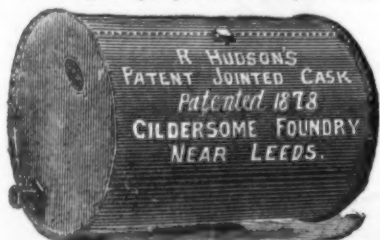 R HUDSON'S
PATENT JOINTED CASK
Patented 1878
GILDERSOME FOUNDRY
NEAR LEEDS.